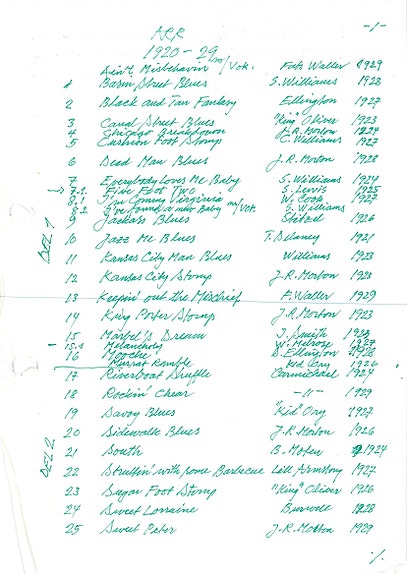 ARR
-1-
1920-29
Ain't Misbehavin m/Vok. Fats Waller 1929
1 Basin Street Blues S. Williams 1928
2 Black and Tan Fantasy Ellington 1927
3 Canal Street Blues "King" Oliver 1923
4 Chicago Breakdown J.R. Morton 1924
5 Cushion Foot Stomp C. Williams 1927
6 Dead Man Blues J.R. Morton 1928
7 Everybody Loves My Baby S. Williams 1924
7.1. Five Foot Two S. Lewis 1925
8.1 I'm Coming Virginia W. Cook 1927
8.2 I've found a new Baby m/Vok. S. Williams
9 Jackass Blues 1926
DEL 1
10 Jazz Me Blues T. Delaney 1921
11 Kansas City Man Blues Williams 1923
12 Kansas City Stomp J.R. Morton 1923
13 Keepin' out the Mischief F. Waller 1929
14 King Porter Stomp J.R. Morton 1923
15 Mabel's Dream J. Smith 1923
15.1 Melancholy W. Melrose 1927
16 Mooche D. Ellington 1928
Muskrat Ramble Kid Ory 1926
17 Riverboat Shuffle Carmichael 1924
18 Rockin' Chear -"- 1929
19 Savoy Blues "Kid" Ory 1927
20 Sidewalk Blues J.R. Morton 1926
DEL 2
21 South B. Moten 1924
22 Struttin' with some Barbecue Lill Armstrong 1927
23 Sugar Foot Stomp "King" Oliver 1926
24 Sweet Lorraine Burwell 1928
25 Sweet Peter J.R. Morton 1929